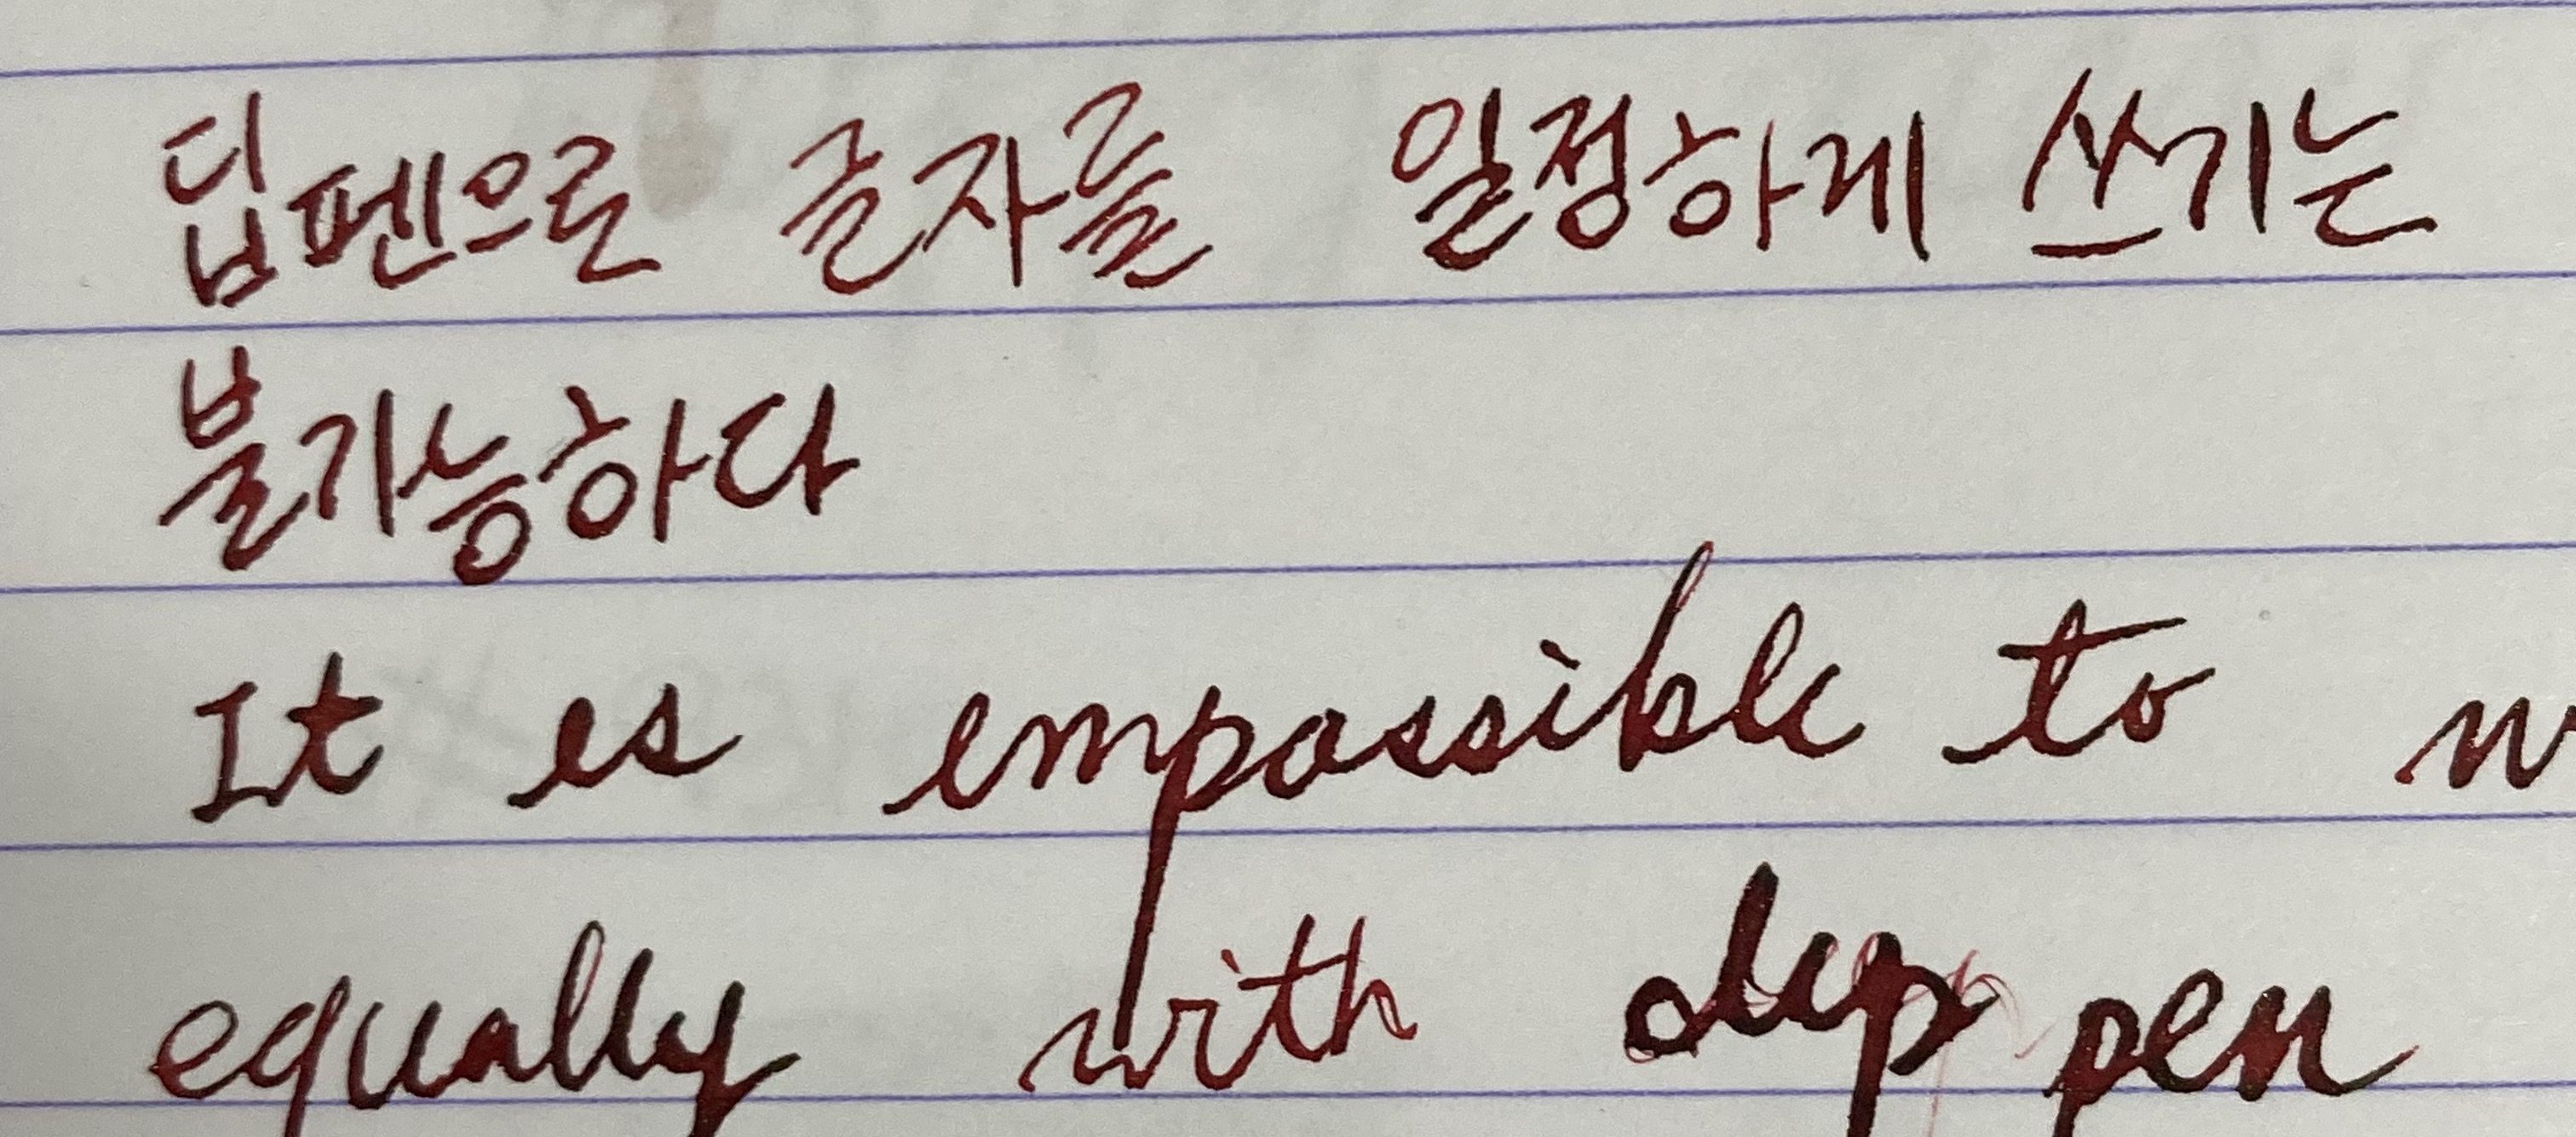 딥펜으로 글자를 일정하게 쓰기는
불가능하다
It is impossible to
equally with dip pen